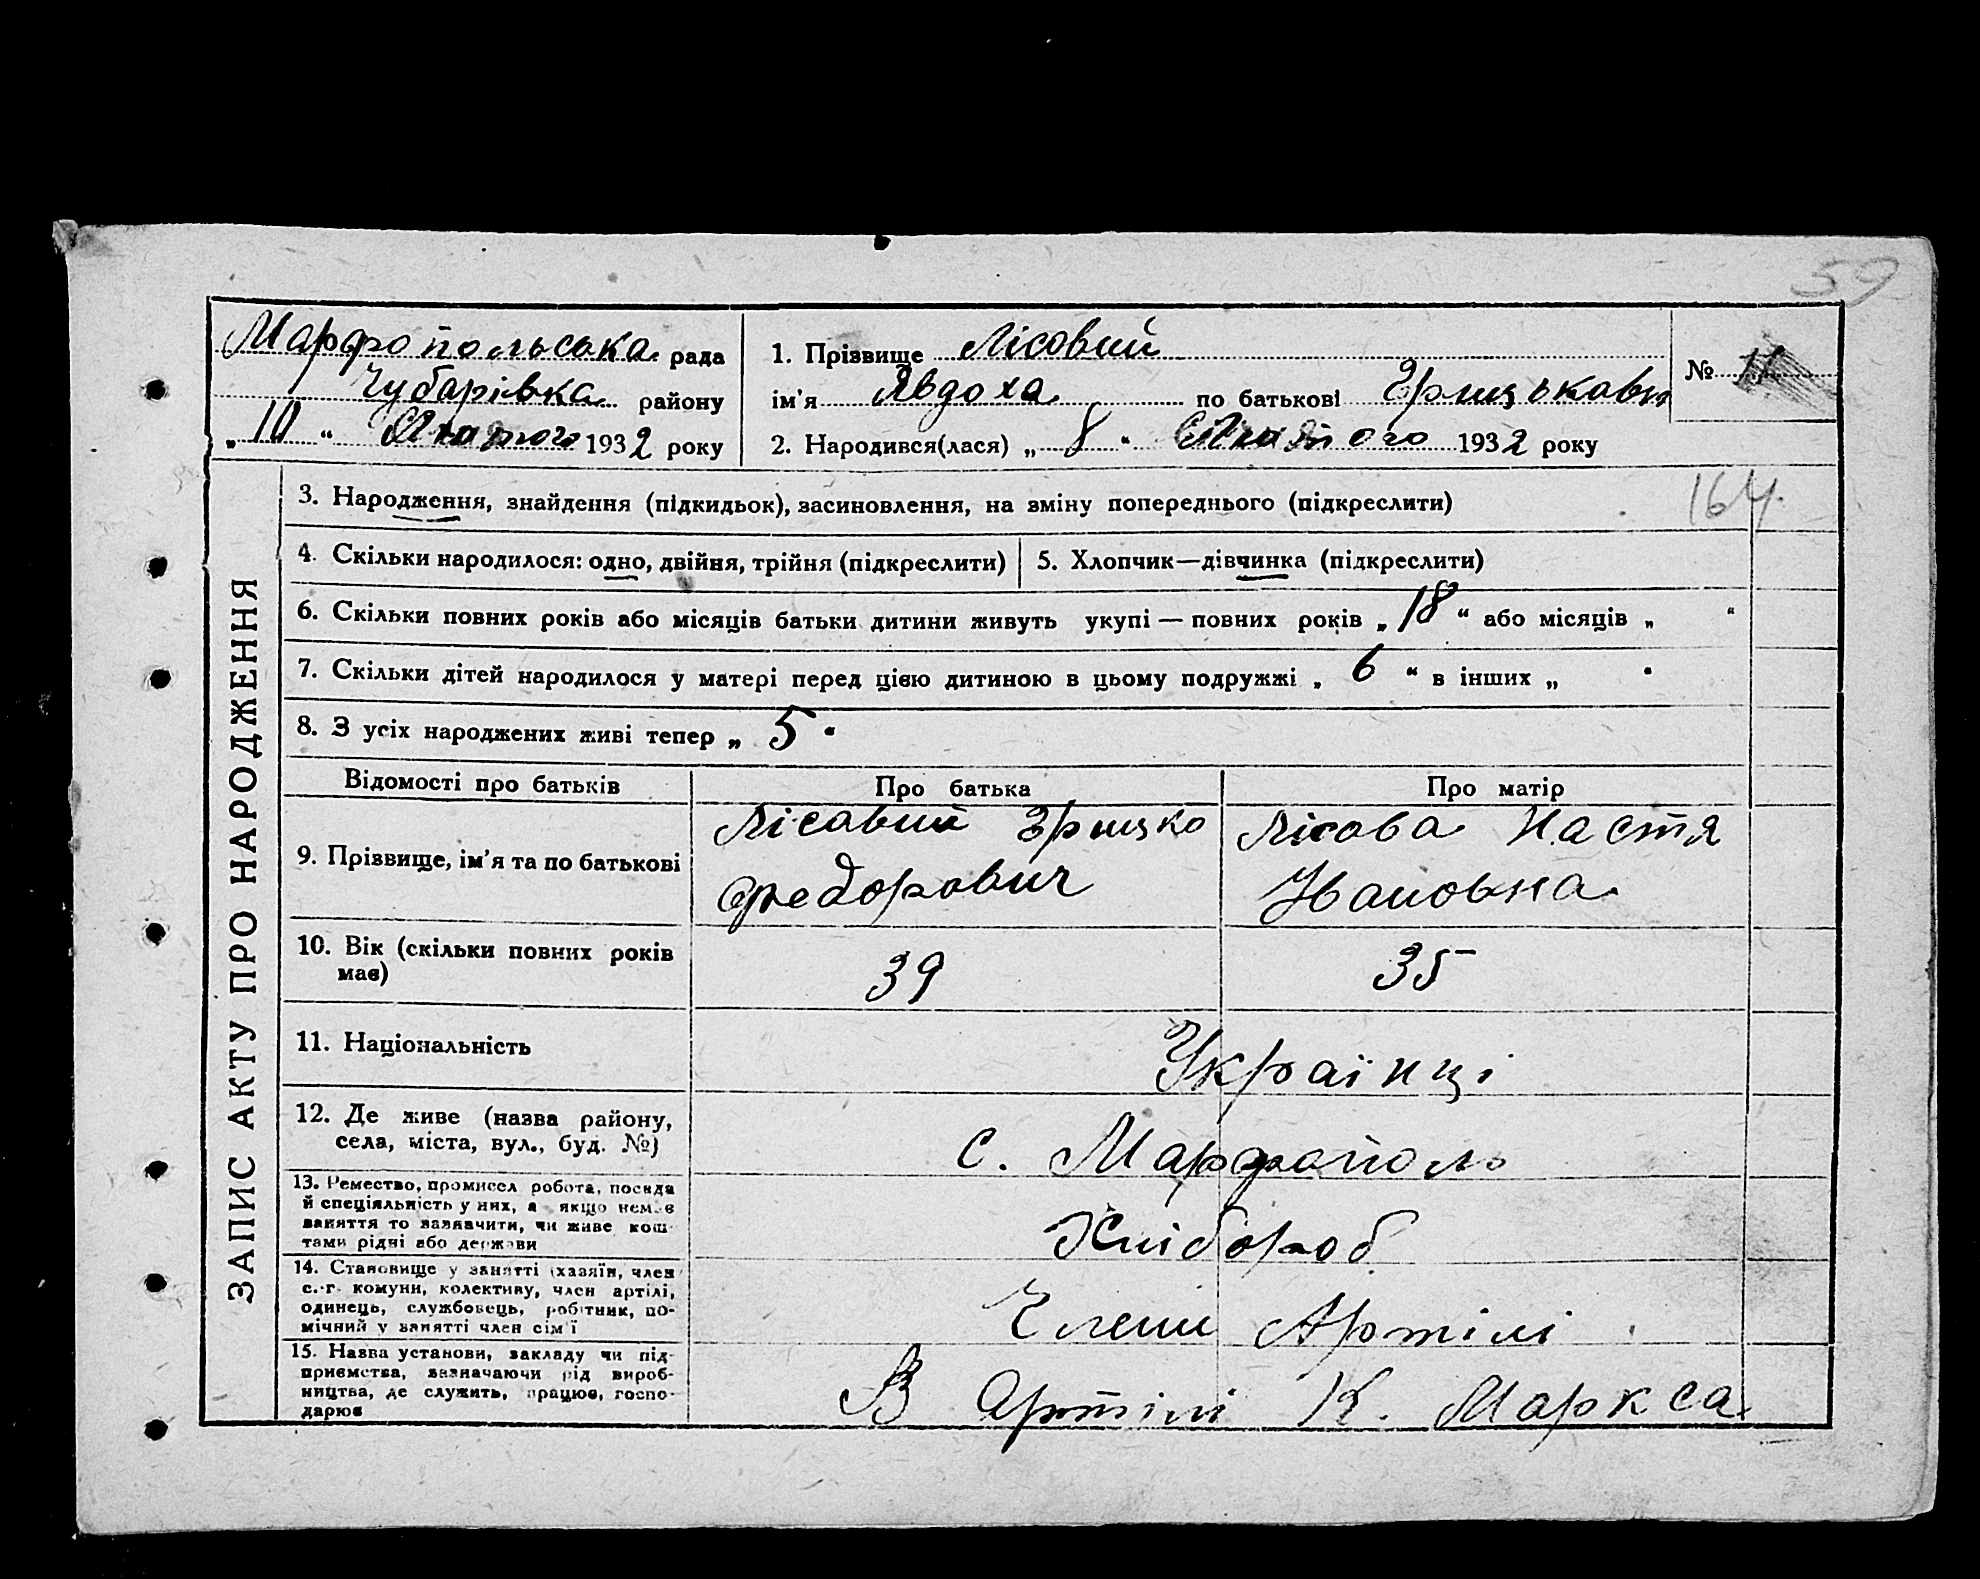 59
Марфопольська рада
Чубарівка району
„10“ Лютого 1932 року
1. Прізвище Лісовий
ім'я Явдоха по батькові Грицькавн
2. Народився(лася) „8“ Лютого 1932 року
№ 11
ЗАПИС АКТУ ПРО НАРОДЖЕННЯ
3. Народження, знайдення (підкидьок), засиновлення, на зміну попереднього (підкреслити)
164
4. Скільки народилося: одно, двійня, трійня (підкреслити)
5. Хлопчик—дівчинка (підкреслити)
6. Скільки повних років або місяців батьки дитини живуть укупі — повних років „18“ або місяців „ “
7. Скільки дітей народилося у матері перед цією дитиною в цьому подружжі „6“ в інших „ “
8. З усіх народжених живі тепер „5“
Відомості про батьків Про батька Про матір
9. Прізвище, ім'я та по батькові
Лісавий Грицко
Федорович
Лісова Настя
Івановна
10. Вік (скільки повних років
має)
39
35
11. Національність
Українці
12. Де живе (назва району,
села, міста, вул., буд. №)
с. Марфополь
13. Ремество, промисел робота, посада
й спеціяльність у них, а якщо нема є
заняття то зазначити, чи живе кош-
тами рідні або держави
Хлібороб
14. Становище у занятті (хазяїн, член
с.-г. комуни, колективу, член артілі,
одинець, службовець, робітник, по-
мічний у занятті член сім'ї
Члени Артілі
15. Назва установи, закладу чи під-
приємства, зазначаючи рід вироб-
ництва, де служить, працює, госпо-
дарює
В Артілі К. Маркса